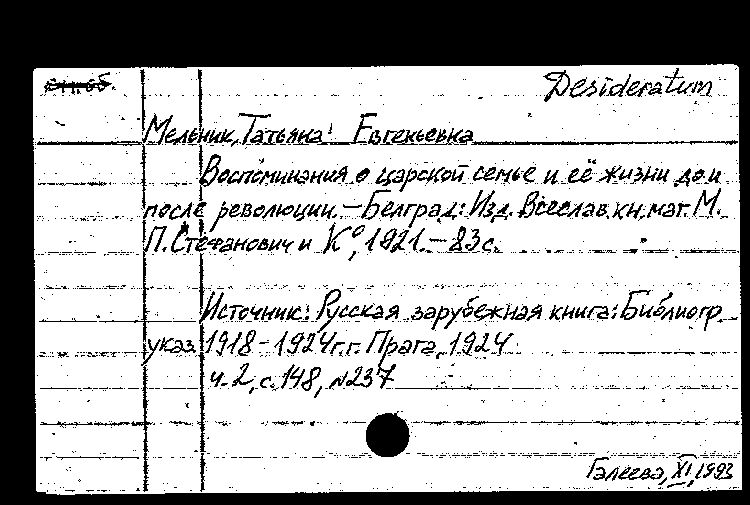 Desideratum
Мельник, Татьяна Евгеньевна
Воспоминания о царской семье и её жизни до и
после революции. — Белград: Изд. Всеслав. кн. маг. М.
П. Стефанович и К°, 1921. — 83 с.
Источник: Русская зарубежная книга: Библиогр.
указ. 1918-1924 г.г. Прага, 1924
ч. 2, с. 148, №237
Галеева, XI, 1993